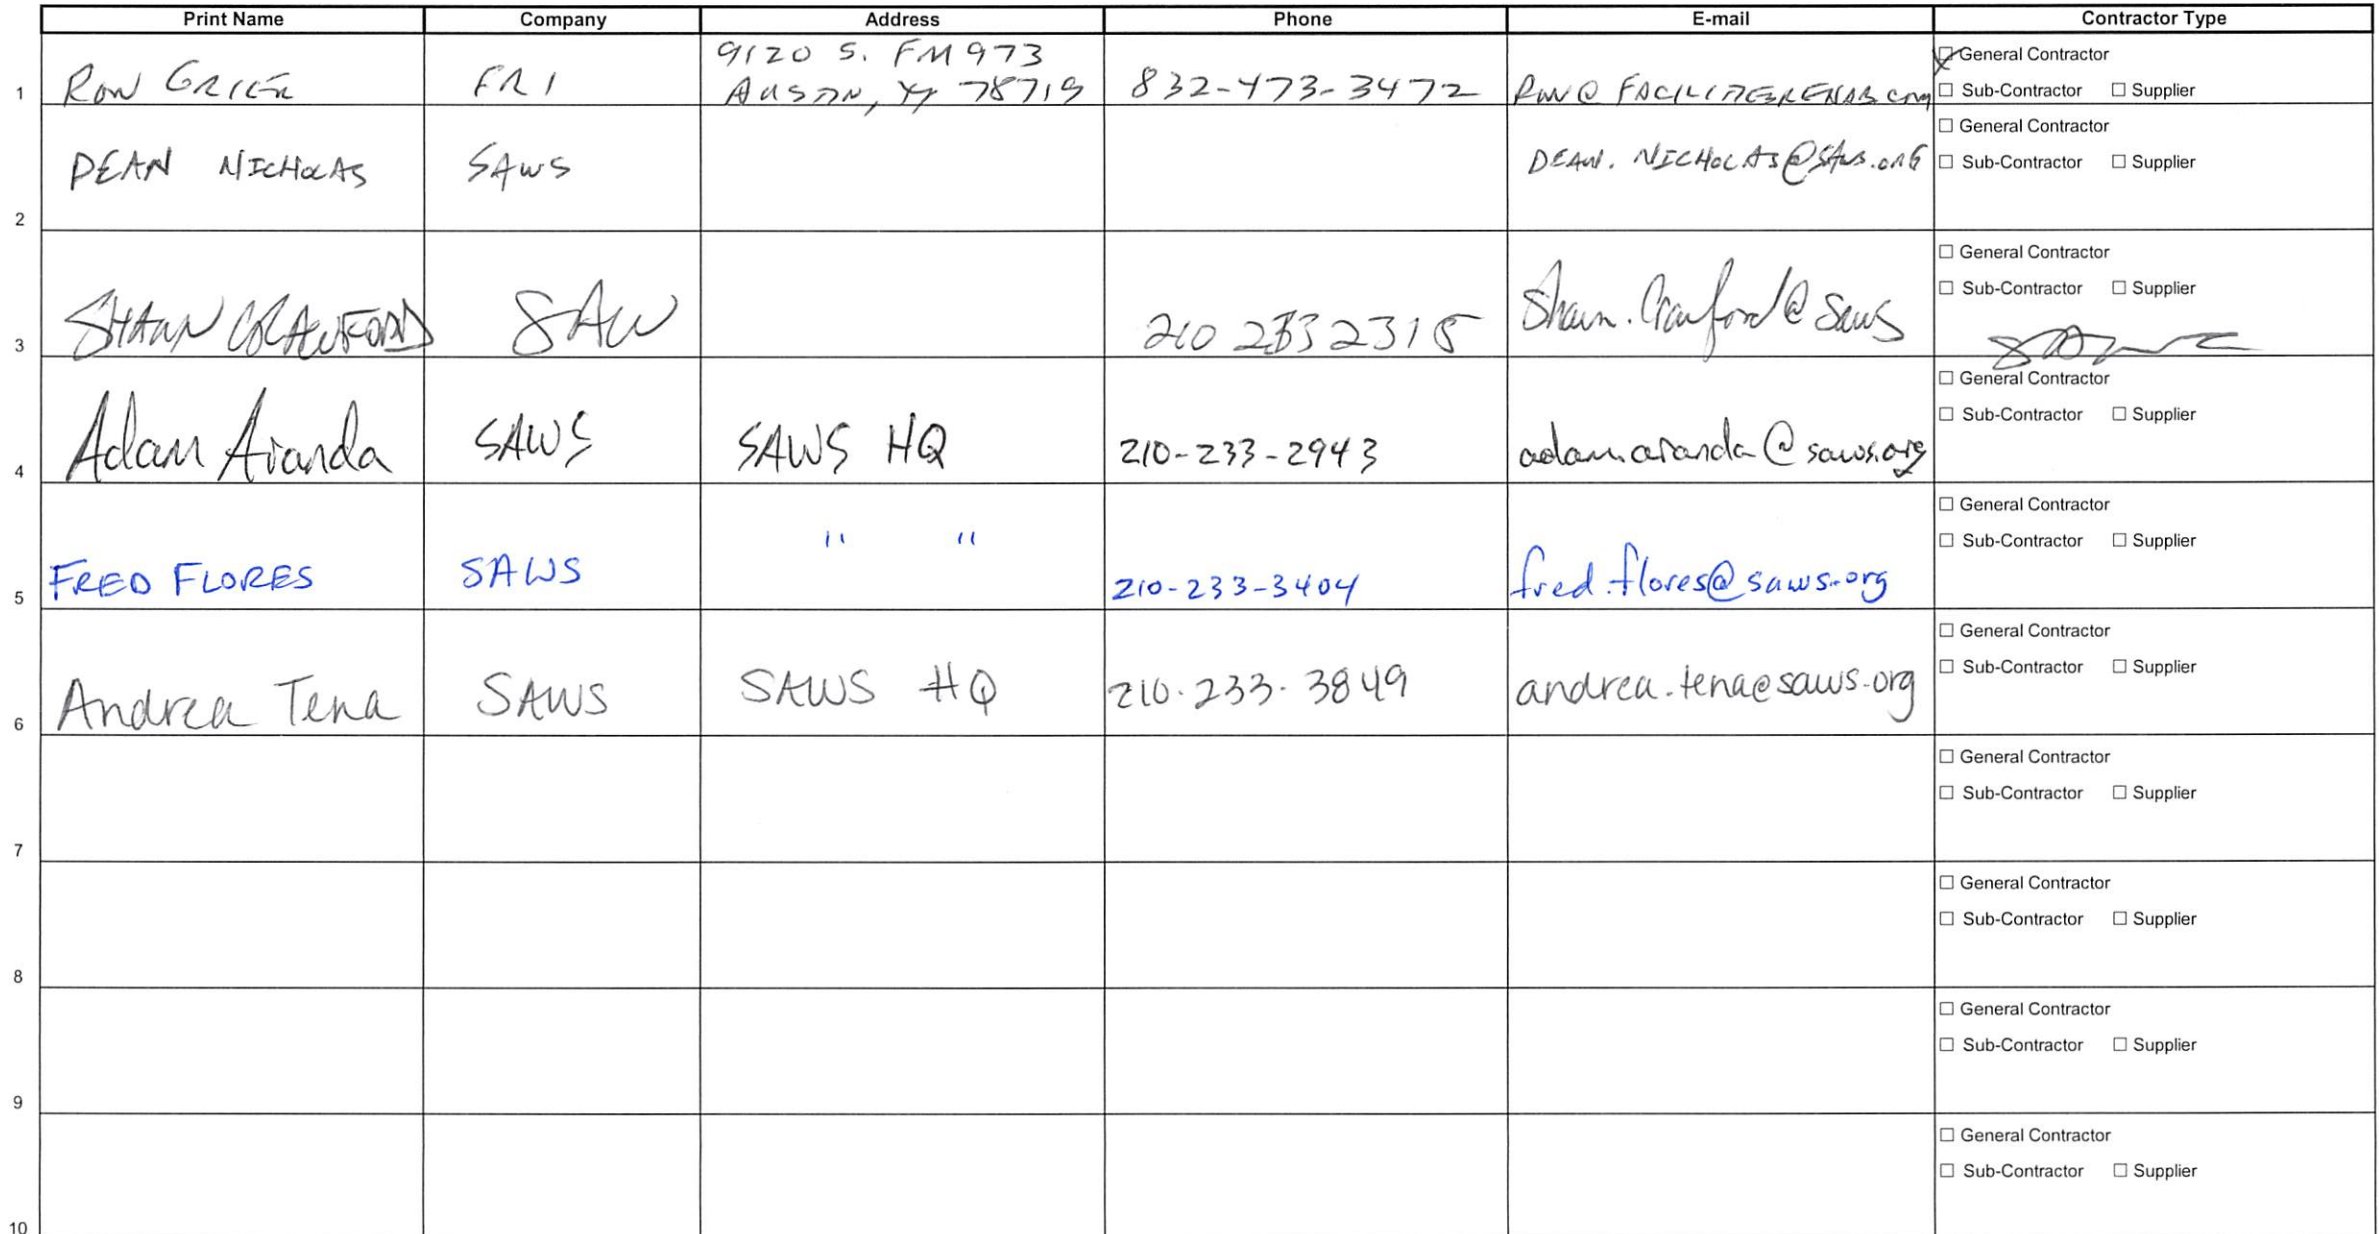 Print Name Company Address Phone E-mail Contractor Type
9120 S. FM 973
☑ General Contractor
1 RON FRI 78719 832-473-3472
☐ Sub-Contractor ☐ Supplier
☐ General Contractor
2 DEAN NICHOLAS SAWS DEAN.NICHOLAS@SAWS.ORG
☐ Sub-Contractor ☐ Supplier
☐ General Contractor
☐ Sub-Contractor ☐ Supplier
3 SHAWN CRAWFORD SAW 210 233 2315 Shawn.Crawford@saws
☐ General Contractor
☐ Sub-Contractor ☐ Supplier
4 Adam Aranda SAWS SAWS HQ 210-233-2943 adam.aranda@saws.org
☐ General Contractor
☐ Sub-Contractor ☐ Supplier
5 FRED FLORES SAWS " " 210-233-3404 fred.flores@saws.org
☐ General Contractor
☐ Sub-Contractor ☐ Supplier
6 Andrea Tena SAWS SAWS HQ 210.233.3849 andrea.tena@saws.org
☐ General Contractor
☐ Sub-Contractor ☐ Supplier
7
☐ General Contractor
☐ Sub-Contractor ☐ Supplier
8
☐ General Contractor
☐ Sub-Contractor ☐ Supplier
9
☐ General Contractor
☐ Sub-Contractor ☐ Supplier
10